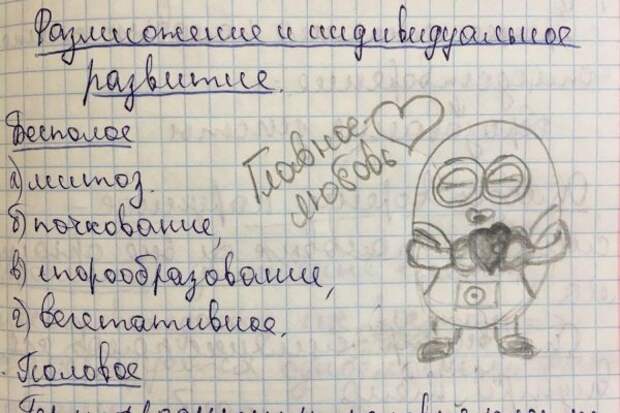 Размножение и индивидуальное
развитие.
Бесполое
а) митоз.
б) почкование,
в) спорообразование,
г) вегетативное.
Половое
Главное-
любовь